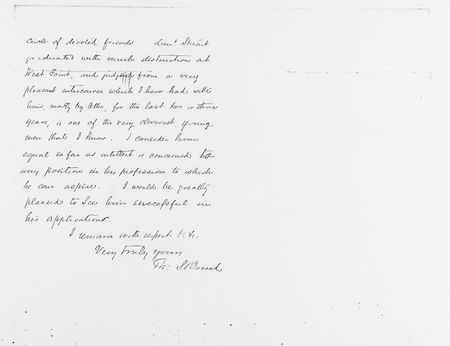 circle of devoted friends Lieut Stuart
graduated with much distinction at
West Point, and judging from a very
pleasant intercourse which I have had with
him, mostly by letter, for the last two or three
years, is one of the very cleverest young
men that I know. I consider him
equal so far as intellect is concerned to
any position in his profession to which
he can aspire. I would be greatly
pleased to see him successful in
his application.
I remain with respect &c &c.
Very truly yours
Th: S Bocock